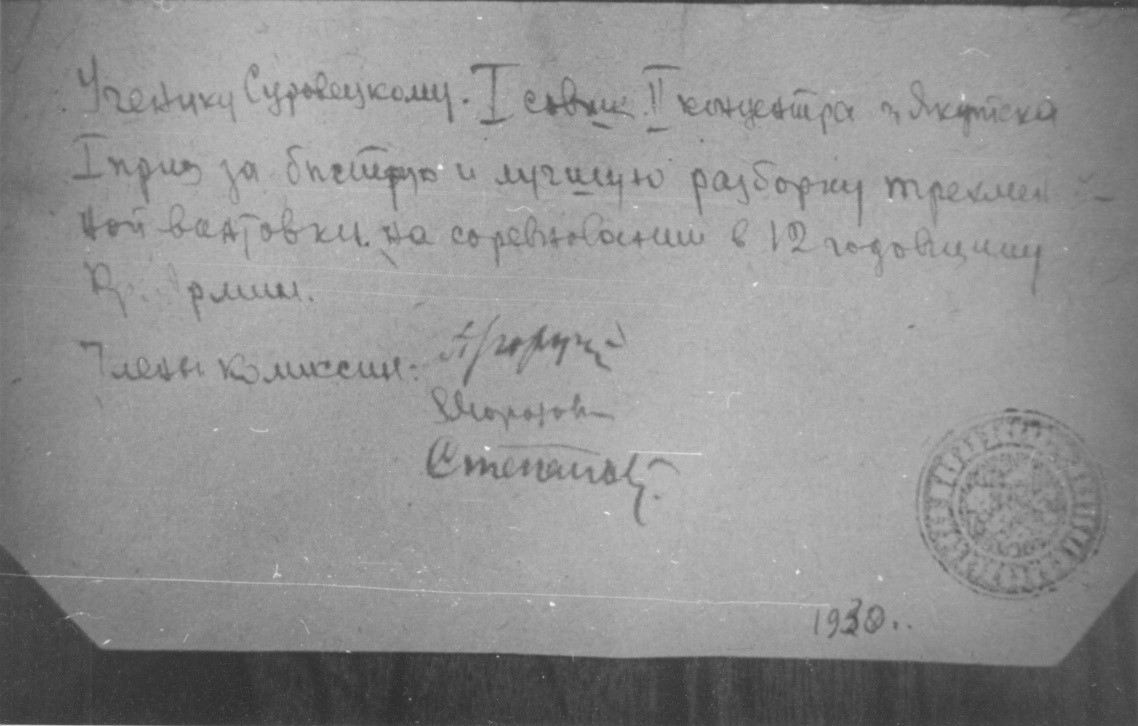 Ученику Суровецкому. I совшк. II концентра г. Якутска
I приз за быструю и лучшую разборку трехлиней-
ной винтовки на соревновании в 12 годовщину
Кр. Армии.
Члены комиссии:
Морозов
Степанов
1930.